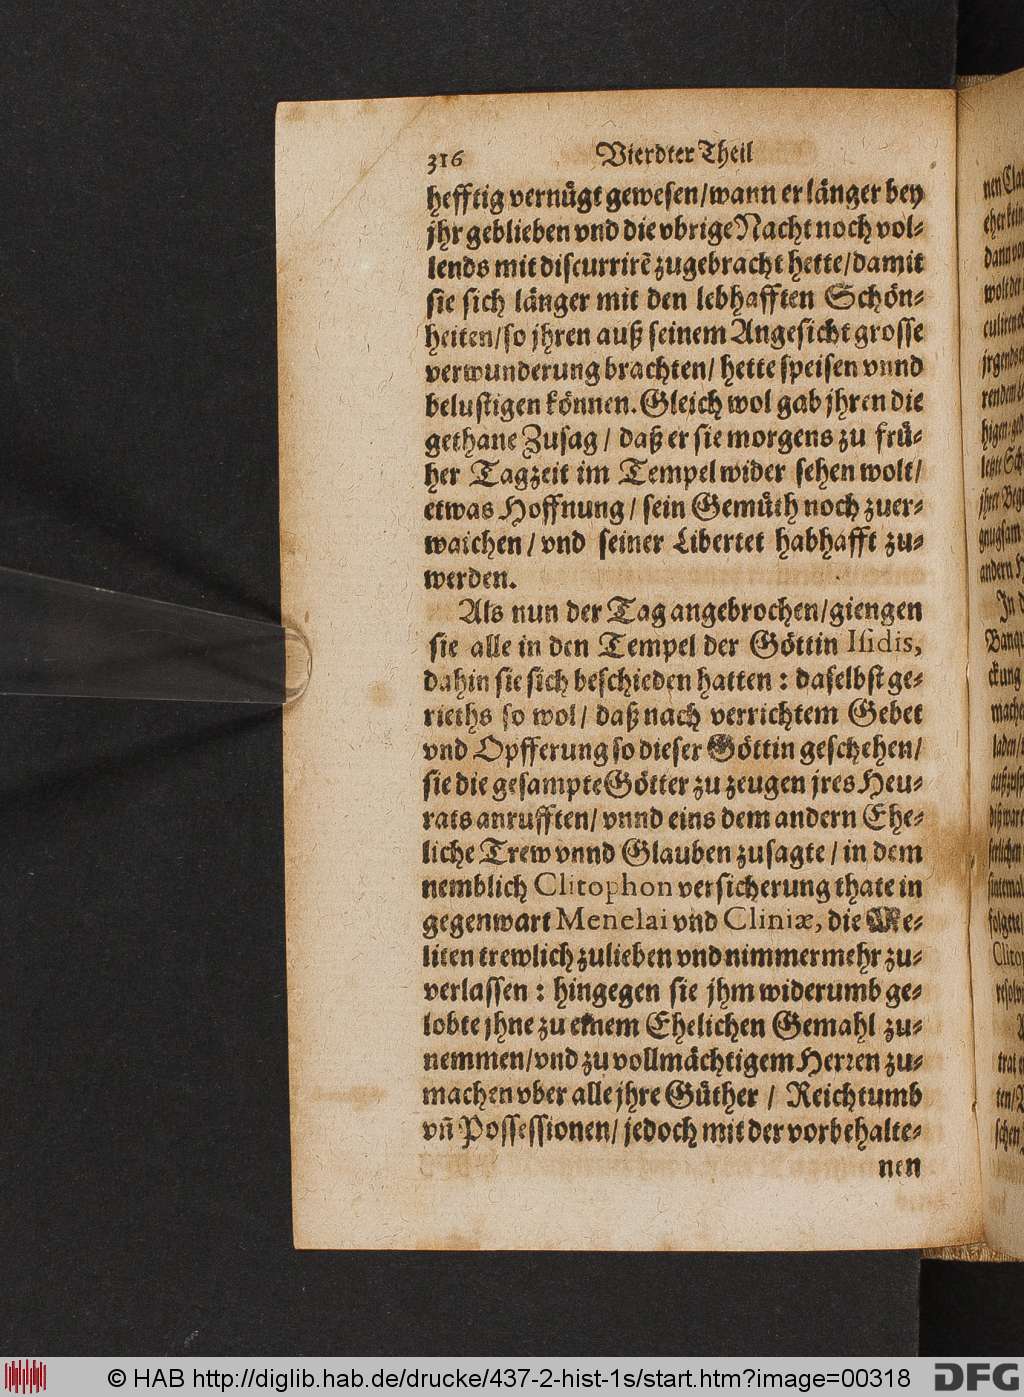 316 Vierdter Theil
hefftig vernügt gewesen/wann er länger bey
jhr geblieben vnd die vbrige Nacht noch vol-
lends mit discurrirẽ zugebracht hette/damit
sie sich länger mit den lebhafften Schön-
heiten/so jhren auß seinem Angesicht grosse
verwunderung brachten/ hette speisen vnnd
belustigen können. Gleich wol gab jhren die
gethane Zusag / daß er sie morgens zu frü-
her Tagzeit im Tempel wider sehen wolt/
etwas Hoffnung / sein Gemüth noch zuer-
waichen / vnd seiner Libertet habhafft zu-
werden.
Als nun der Tag angebrochen/giengen
sie alle in den Tempel der Göttin Isidis,
dahin sie sich beschieden hatten : daselbst ge-
rieths so wol / daß nach verrichtem Gebet
vnd Opfferung so dieser Göttin geschehen/
sie die gesampte Götter zu zeugen jres Heu-
rats anrufften/ vnnd eins dem andern Ehe-
liche Trew vnnd Glauben zusagte / in dem
nemblich Clitophon versicherung thate in
gegenwart Menelai vnd Cliniæ, die Me-
liten trewlich zulieben vnd nimmermehr zu-
verlassen : hingegen sie jhm widerumb ge-
lobte jhne zu einem Ehelichen Gemahl zu-
nemmen/vnd zu vollmächtigem Herren zu-
machen vber alle jhre Güther / Reichtumb
vñ Possessionen/ jedoch mit der vorbehalte-
nen
© HAB http://diglib.hab.de/drucke/437-2-hist-1s/start.htm?image=00318
DFG